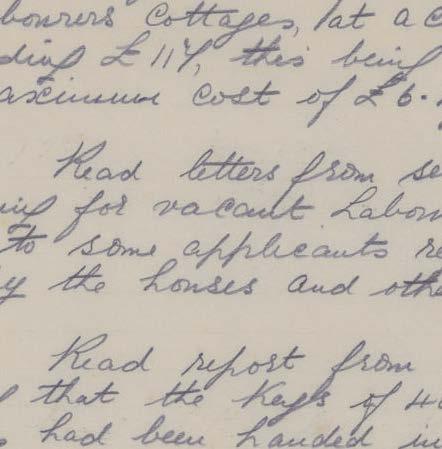 bourers cottages, at a c
ding £117, this being
aximum cost of £6.
Read letters from se
ing for vacant Labour
to some applicants re
by the houses and othe
Read report from
that the Keys of 40
had been handed in